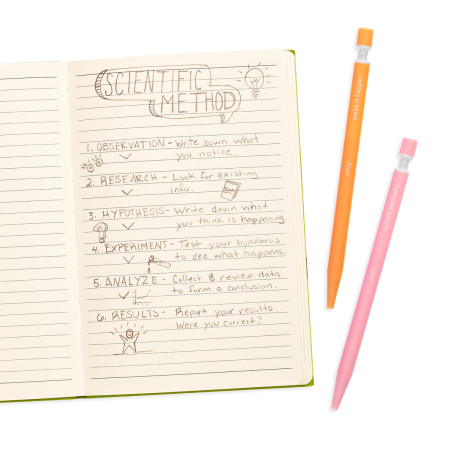 SCIENTIFIC
METHOD
1. OBSERVATION - Write down what
you notice.
2. RESEARCH - Look for existing
info.
3. HYPOTHESIS - Write down what
you think is happening.
4. EXPERIMENT - Test your hypothesis
to see what happens.
5. ANALYZE - Collect & review data
to form a conclusion.
6. RESULTS - Report your results.
Were you correct?
make it happen
ooly
ooly